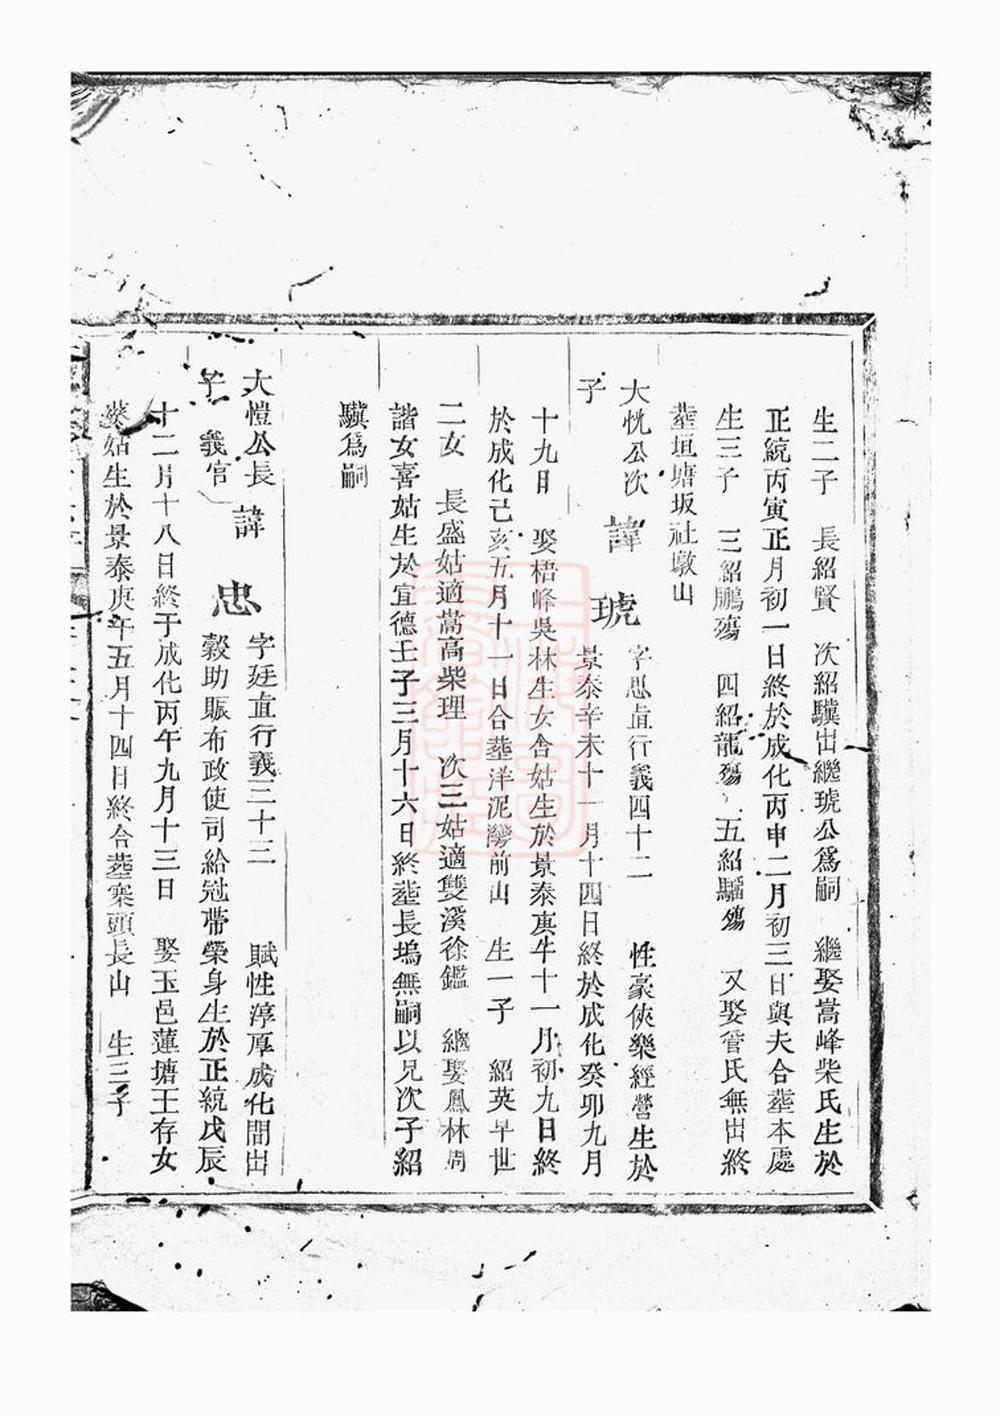 生二子　長紹賢　次紹驥出繼琥公爲嗣　繼娶嵩峰柴氏生於
正統丙寅正月初一日終於成化丙申二月初三日與夫合塟本處
生三子　三紹鵬殤　四紹龍殤　五紹騮殤　又娶管氏無出終
塟垣塘坂社墩山
大恍公次子　諱　琥　字思直行義四十二　性豪俠樂經營生於
景泰辛未十一月十四日終於成化癸卯九月
十九日　娶梧峰吳林生女舍姑生於景泰庚午十一月初九日終
於成化己亥五月十一日合塟洋泥灣前山　生一子　紹英早世
二女　長盛姑適嵩高柴理　次三姑適雙溪徐鑑　繼娶鳳林周
諧女喜姑生於宣德壬子三月十六日終塟長塢無嗣以兄次子紹
驥爲嗣
大愷公長子　義官　諱　忠　字廷直行義三十三　賦性淳厚成化間出
穀助賑布政使司給冠帶榮身生於正統戊辰
十二月十八日終于成化丙午九月十三日　娶玉邑蓮塘王存女
姑生於景泰庚午五月十四日終合塟寨頭長山　生三子